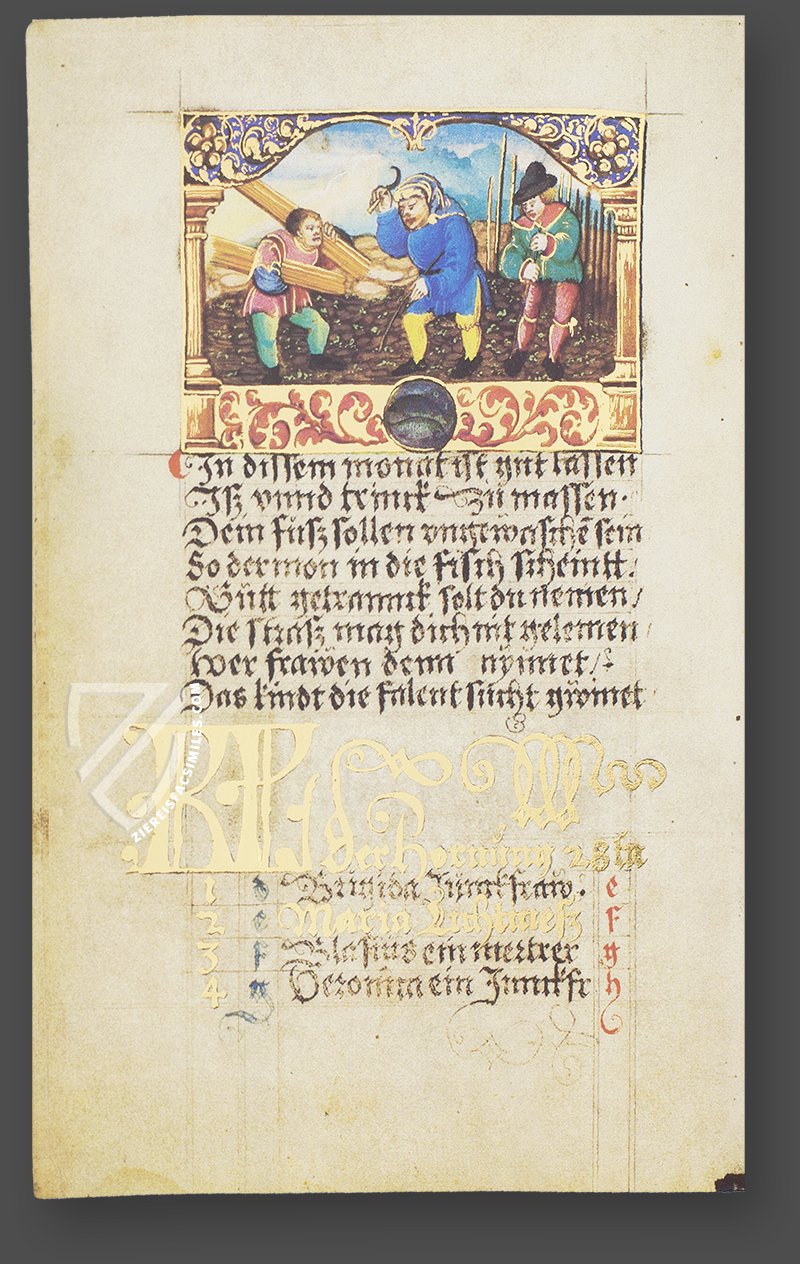 In dissem monat ist gut lassen
Isz vnnd trinck zu massen.
Dem fusz sollen vngewaschē sein
So der mon in die fisch scheintt.
Gutt getranck solt du nemen/
Die strasz mag dich nit gelemen/
Wer frawen denn nymet/
Das kindt die falent sucht gwinet
KL der Hornung 28 ta
1 d Brigida Junckfraw. e
2 e Maria Lichtmesz f
3 f Blasius ein mertrer g
4 g Veronica ein Junckfr h
ZIEREIS FACSIMILES